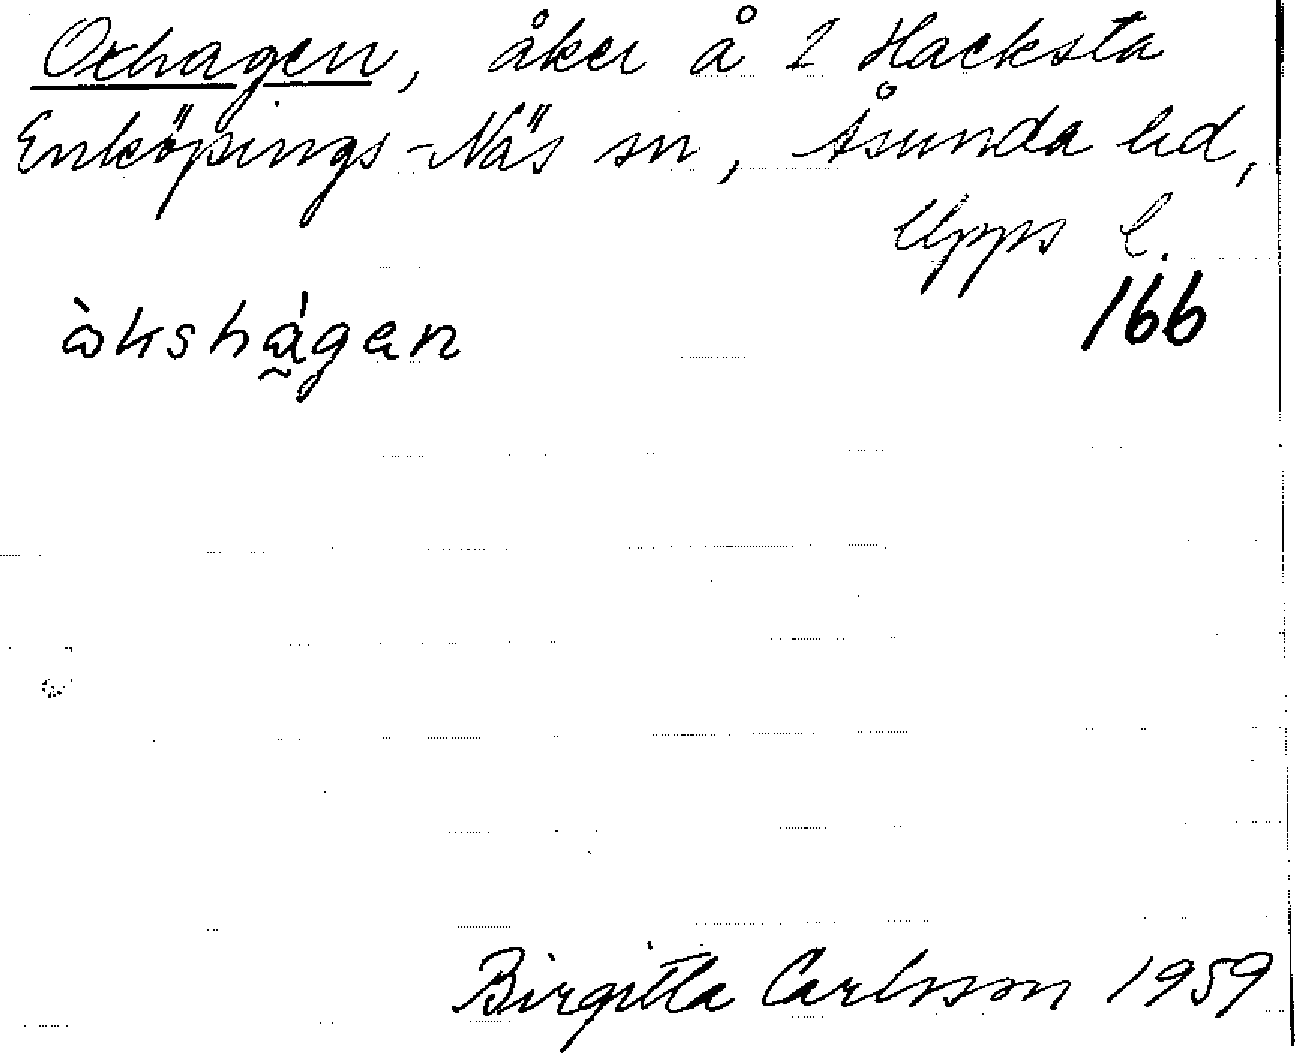 Oxhagen, åker å 2 Hacksta
Enköpings-Näs sn, Åsunda hd,
Upps l.
166
åkshágen
Birgitta Carlsson 1959